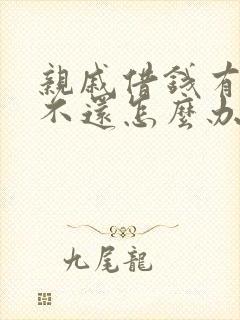 親戚借錢有
不還怎麼办
九尾龍